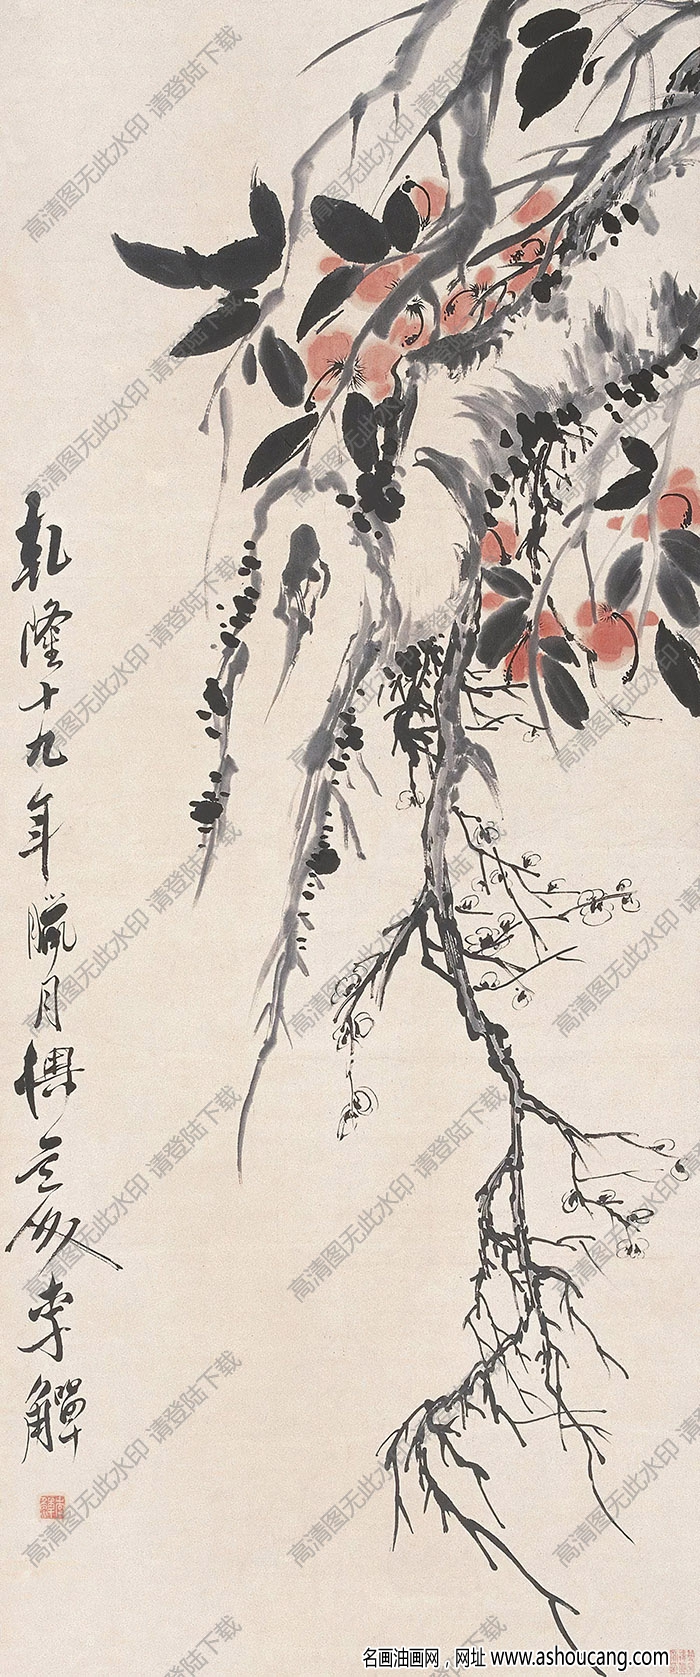 乾隆十九年臘月懊道人李觶
名画油画网，网址 www.ashoucang.com
高清图无此水印 请登陆下载